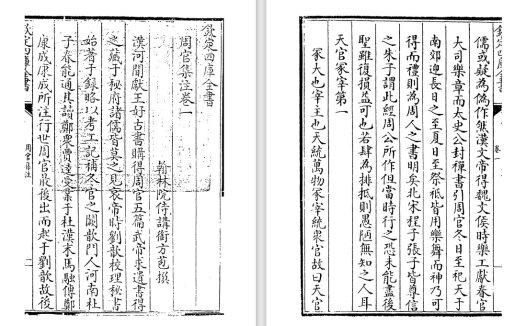 欽定四庫全書
周官集注卷一
翰林院侍講銜方苞撰
漢河間獻王好古書購得周官五篇武帝求遺書得
之藏于秘府諸儒皆莫之見哀帝時劉歆校理秘書
始著于録略以考工記補冬官之闕歆門人河南杜
子春能通其讀鄭衆賈逵受業于杜漢末馬融傳鄭
康成康成所注行世周官最後出而起于劉歆故後
欽定四庫全書
周官集注
一
欽定四庫全書
卷一
儒或疑為偽作然漢文帝得魏文侯時樂工獻春官
大司樂章而太史公封禪書引周官冬日至祀天于
南郊迎長日之至夏日至祭祗皆用樂舞而神乃可
得而禮則為周人之書明矣北宋程子張子皆尊信
之朱子謂此經周公所作但當時行之恐未能盡後
聖雖復損益可也若肆為排抵則愚陋無知之人耳
天官冢宰第一
冢大也宰主也天統萬物冢宰統衆官故曰天官